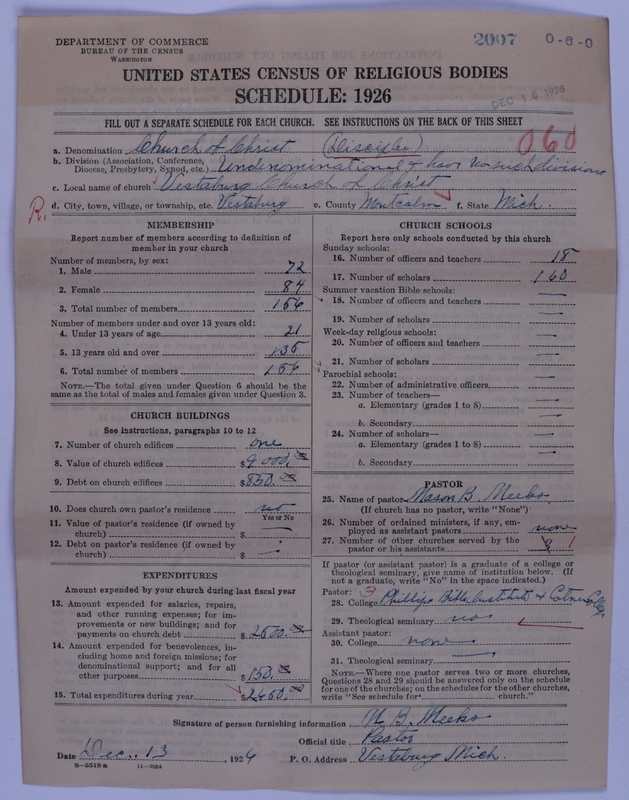 DEPARTMENT OF COMMERCE
BUREAU OF THE CENSUS
WASHINGTON
2097 0-6-0
UNITED STATES CENSUS OF RELIGIOUS BODIES
SCHEDULE: 1926
DEC 16 1926
FILL OUT A SEPARATE SCHEDULE FOR EACH CHURCH. SEE INSTRUCTIONS ON THE BACK OF THIS SHEET
a. Denomination Church of Christ (Disciples) 060
b. Division (Association, Conference, Diocese, Presbytery, Synod, etc.) Undenominational & have no such divisions
c. Local name of church Vestaburg Church of Christ
R. d. City, town, village, or township, etc. Vestaburg e. County Montcalm f. State Mich.
MEMBERSHIP
Report number of members according to definition of
member in your church
Number of members, by sex:
1. Male 72
2. Female 84
3. Total number of members 156
Number of members under and over 13 years old:
4. Under 13 years of age 21
5. 13 years old and over 135
6. Total number of members 156
NOTE.—The total given under Question 6 should be the
same as the total of males and females given under Question 3.
CHURCH BUILDINGS
See instructions, paragraphs 10 to 12
7. Number of church edifices one
8. Value of church edifices $9000.00
9. Debt on church edifices $850.00
10. Does church own pastor's residence no
Yes or No
11. Value of pastor's residence (if owned by
church) $ —
12. Debt on pastor's residence (if owned by
church) $ —
EXPENDITURES
Amount expended by your church during last fiscal year
13. Amount expended for salaries, repairs,
and other running expenses; for im-
provements or new buildings; and for
payments on church debt $
14. Amount expended for benevolences, in-
cluding home and foreign missions; for
denominational support; and for all
other purposes $150.00
15. Total expenditures during year $
CHURCH SCHOOLS
Report here only schools conducted by this church
Sunday schools:
16. Number of officers and teachers 18
17. Number of scholars 160
Summer vacation Bible schools:
18. Number of officers and teachers —
19. Number of scholars —
Week-day religious schools:
20. Number of officers and teachers —
21. Number of scholars —
Parochial schools:
22. Number of administrative officers —
23. Number of teachers—
a. Elementary (grades 1 to 8) —
b. Secondary —
24. Number of scholars—
a. Elementary (grades 1 to 8) —
b. Secondary —
PASTOR
25. Name of pastor Mason B. Meeks
(If church has no pastor, write "None")
26. Number of ordained ministers, if any, em-
ployed as assistant pastors none
27. Number of other churches served by the
pastor or his assistants 1
If pastor (or assistant pastor) is a graduate of a college or
theological seminary, give name of institution below. (If
not a graduate, write "No" in the space indicated.)
Pastor: 3
28. College Phillips Bible Institute & College
29. Theological seminary no
Assistant pastor:
30. College none
31. Theological seminary —
NOTE.—Where one pastor serves two or more churches,
Questions 28 and 29 should be answered only on the schedule
for one of the churches; on the schedules for the other churches,
write "See schedule for church."
Signature of person furnishing information M. B. Meeks
Official title Pastor
Date Dec. 13, 1926 P. O. Address Vestaburg Mich.
8—5518 a 11—9054